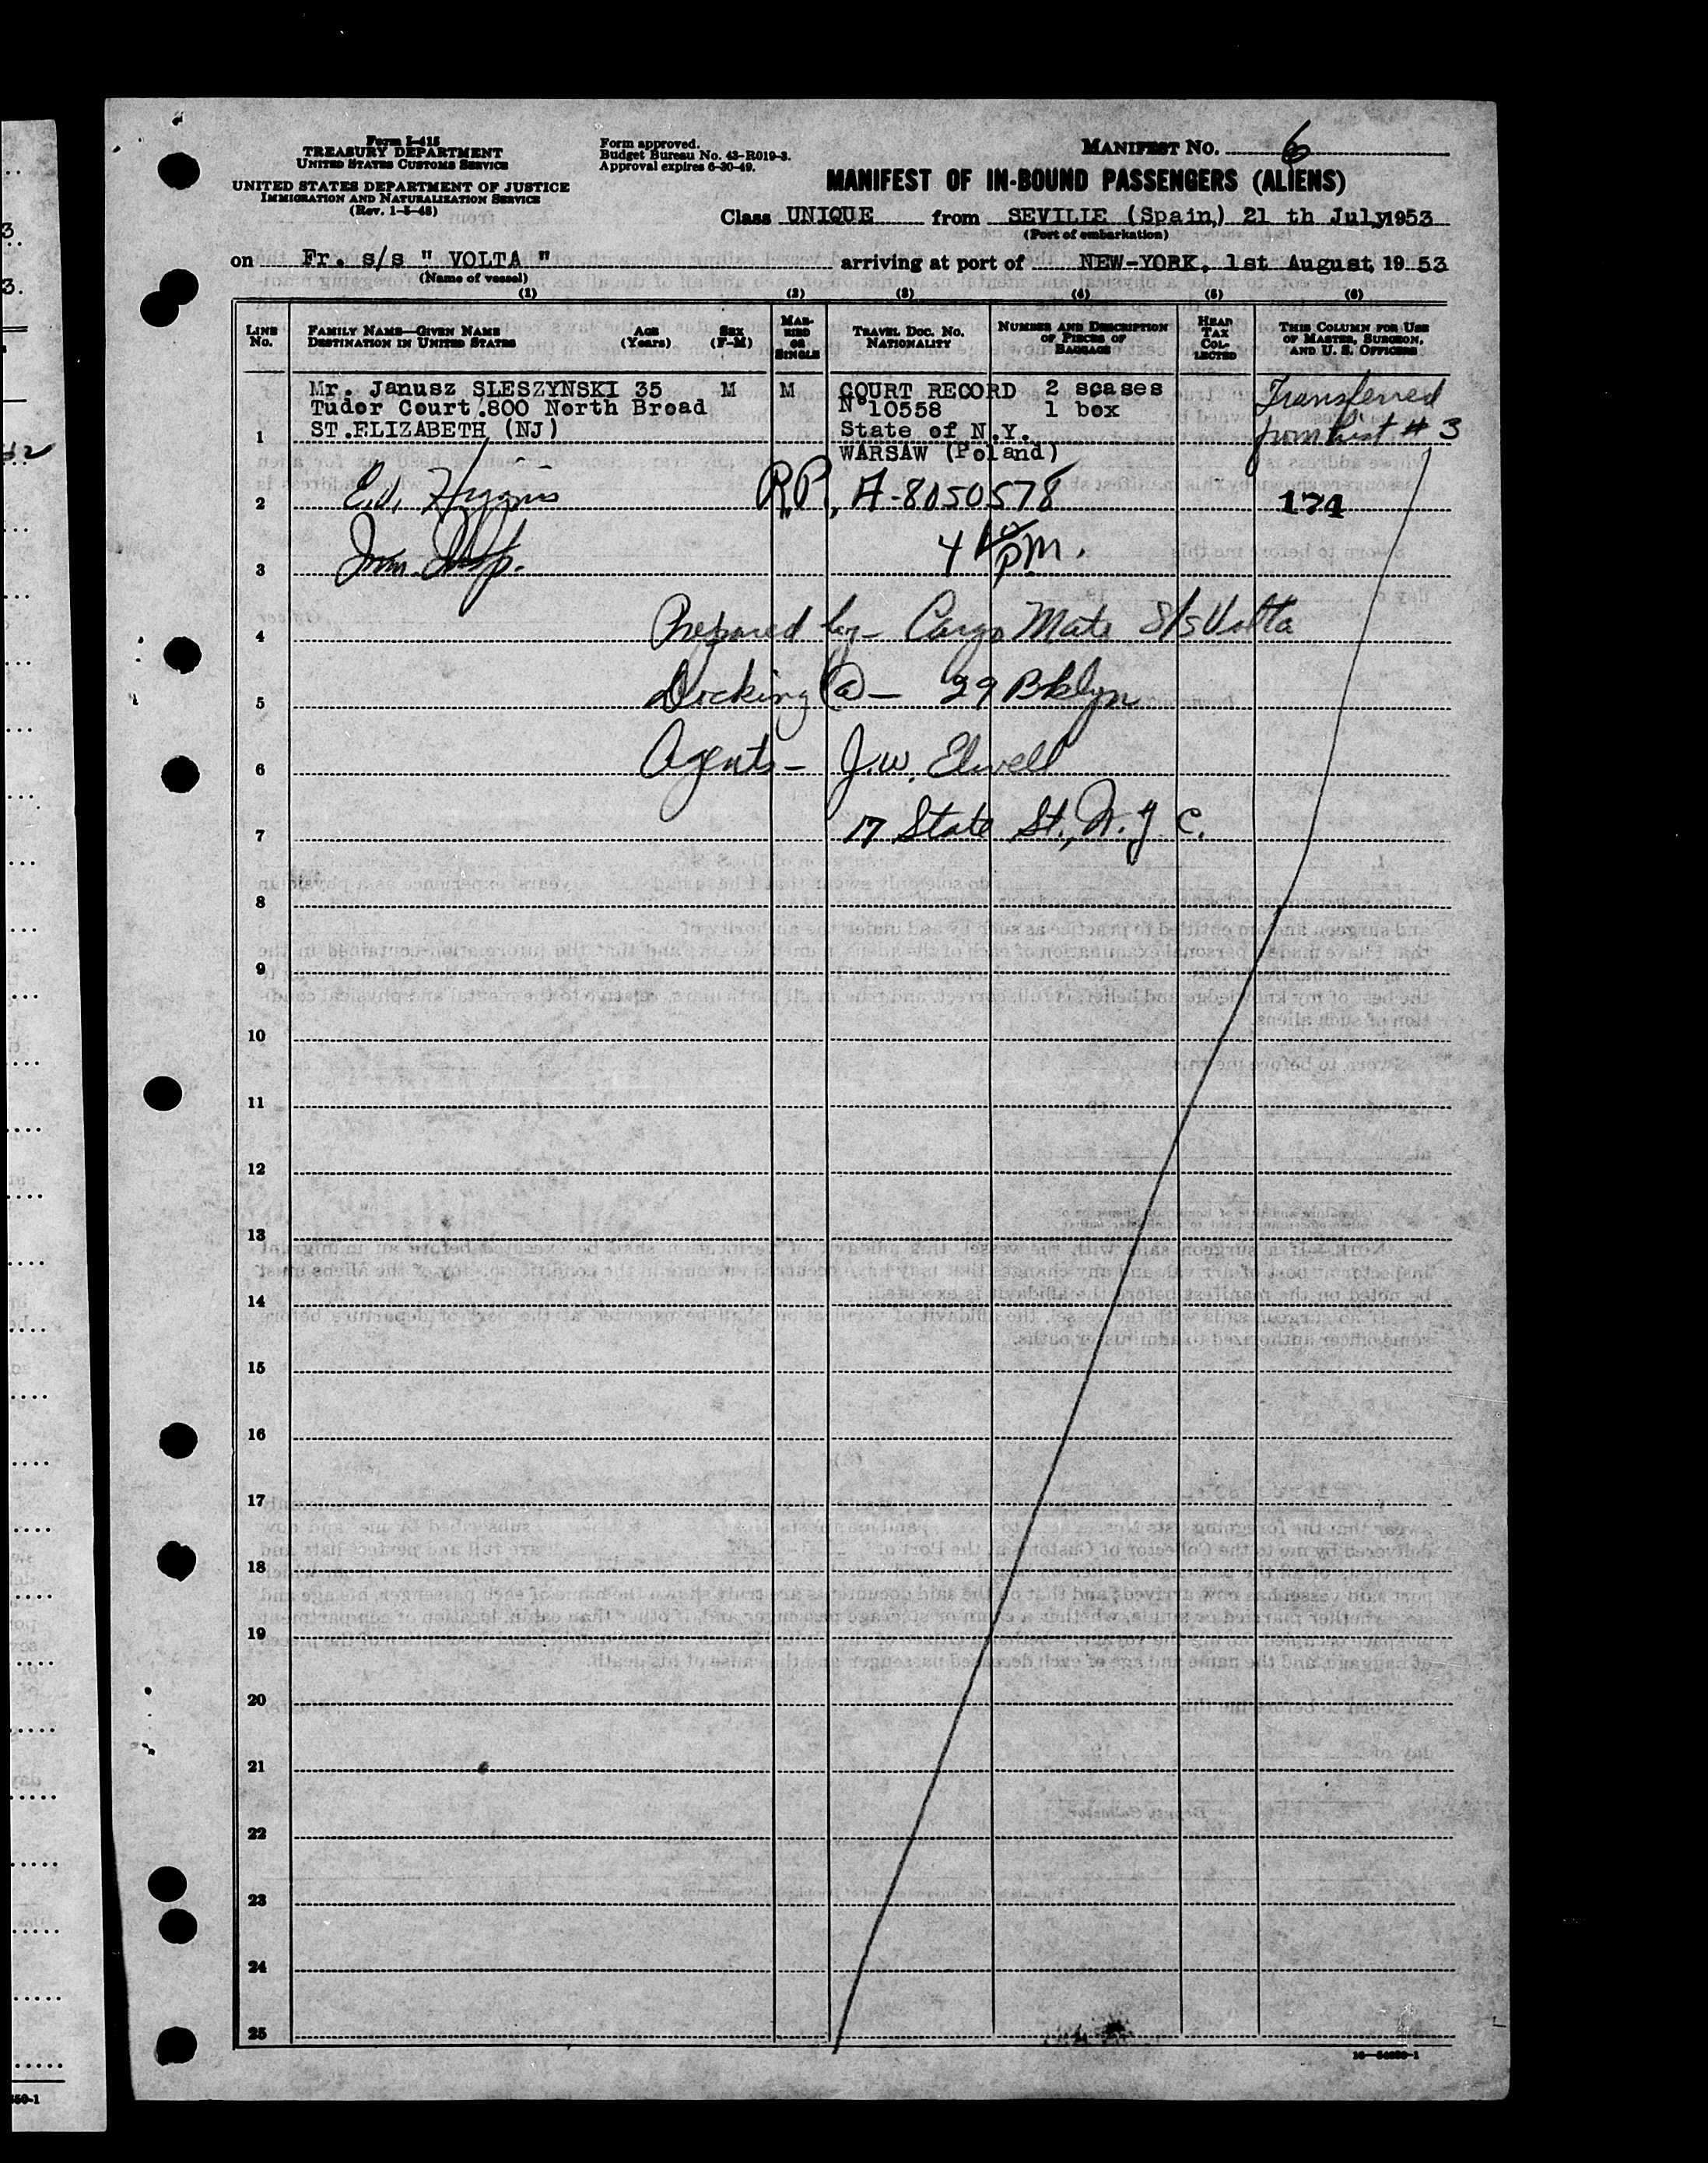 Form I-415
TREASURY DEPARTMENT
UNITED STATES CUSTOMS SERVICE
UNITED STATES DEPARTMENT OF JUSTICE
IMMIGRATION AND NATURALIZATION SERVICE
(Rev. 1-5-48)
Form approved.
Budget Bureau No. 43-R019-3.
Approval expires 6-30-49.
MANIFEST NO. 6
MANIFEST OF IN-BOUND PASSENGERS (ALIENS)
Class UNIQUE from SEVILLE (Spain,) 21 th July, 1953
(Port of embarkation)
on Fr. s/s " VOLTA " arriving at port of NEW-YORK, 1st August, 19 53
(Name of vessel)
(1) (2) (3) (4) (5) (6)
LINE No.
FAMILY NAME—GIVEN NAME
DESTINATION IN UNITED STATES
AGE (Years)
SEX (F-M)
MARRIED OR SINGLE
TRAVEL DOC. NO. NATIONALITY
NUMBER AND DESCRIPTION OF PIECES OF BAGGAGE
HEAD TAX COLLECTED
THIS COLUMN FOR USE OF MASTER, SURGEON, AND U. S. OFFICERS
Mr. Janusz SLESZYNSKI 35 M M COURT RECORD 2 scases Transferred
Tudor Court.800 North Broad N°10558 1 box from List # 3
1 ST.ELIZABETH (NJ) State of N.Y.
WARSAW (Poland)
2 R.P. A-8050578 174
3 Imm. Insp. pm.
4 Prepared by – Cargo Mate S/s Volta
5 Docking @ – 29 Bklyn
6 Agents – J.W. Elwell
7 17 State St., N.Y C.
8
9
10
11
12
13
14
15
16
17
18
19
20
21
22
23
24
25